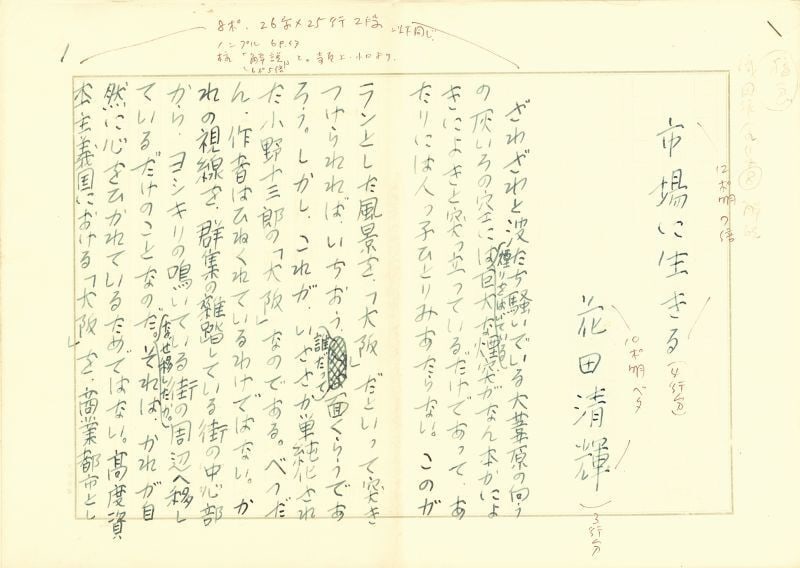 8ポ. 26字×25行 2段 以下同じ
ノンブル
市場に生きる
(4行分)
12ポ明
花田清輝
3行分
10ポ明ベタ
ざわざわと波だち騒いでいる大葦原の向う
の灰いろの空には、煙りをはいている巨大な煙突がなん本かによ
きによきと突っ立っているだけであって、あ
たりには人っ子ひとりみあたらない。このガ
ランとした風景を、「大阪」だといって突き
つけられれば、いちおう、誰だって面くらうであ
ろう。しかし、これが、いささか単純化され
た小野十三郎の「大阪」なのである。べつだ
ん、作者はひねくれているわけではない。か
れの視線を、群集の雑踏している街の中心部
から、ヨシキリの鳴いている街の周辺へ移し
ているだけのことなのだ。それは、かれが自
然に心をひかれているためではない。高度資
本主義国における「大阪」を、商業都市とし